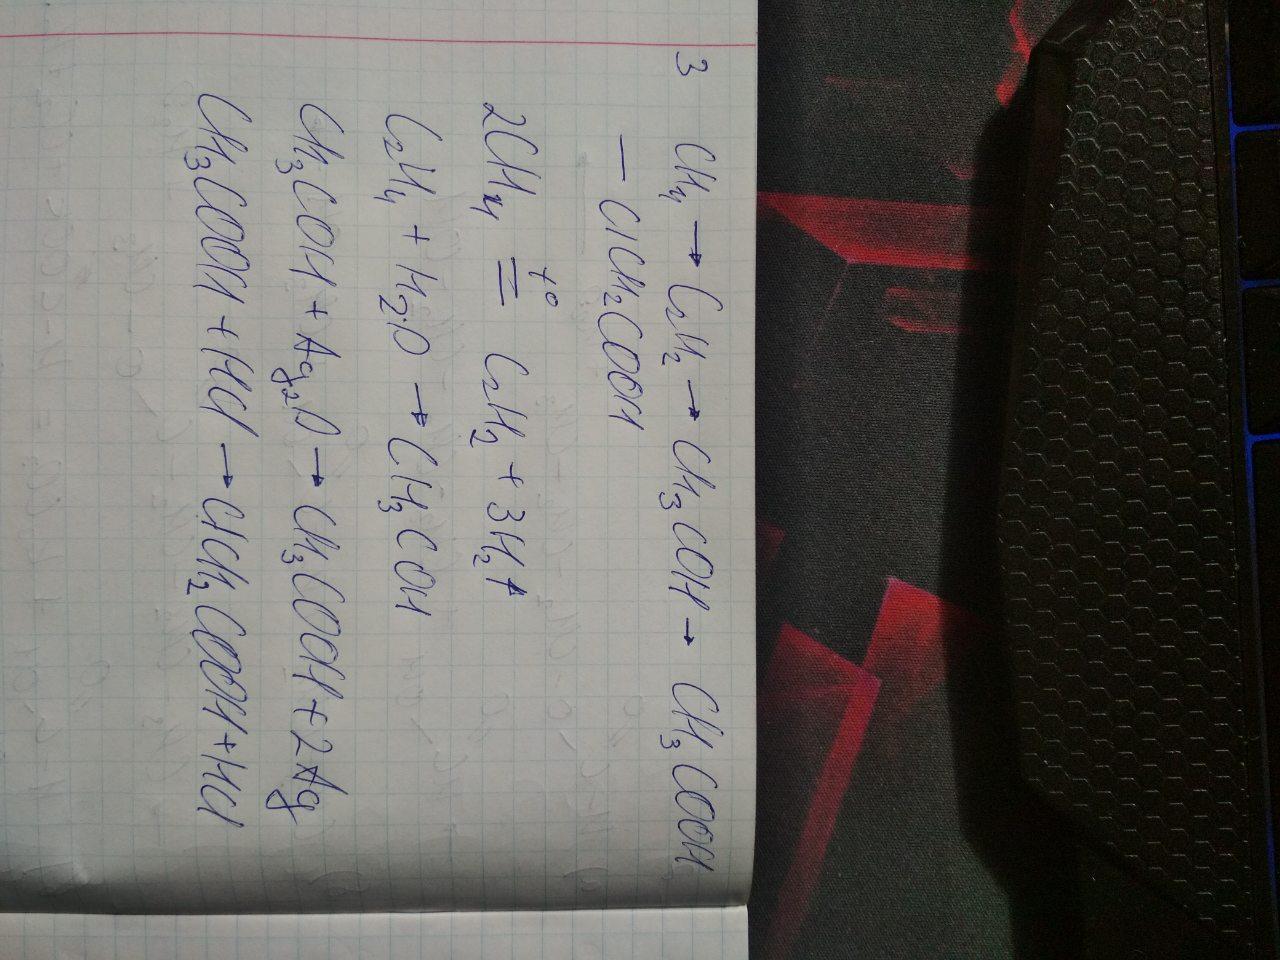 3 CH₄ → C₂H₂ → CH₃COH → CH₃COOH
— ClCH₂COOH
2CH₄ =t° C₂H₂ + 3H₂↑
C₂H₄ + H₂O → CH₃COH
CH₃COH + Ag₂O → CH₃COOH + 2Ag
CH₃COOH + HCl → ClCH₂COOH + HCl